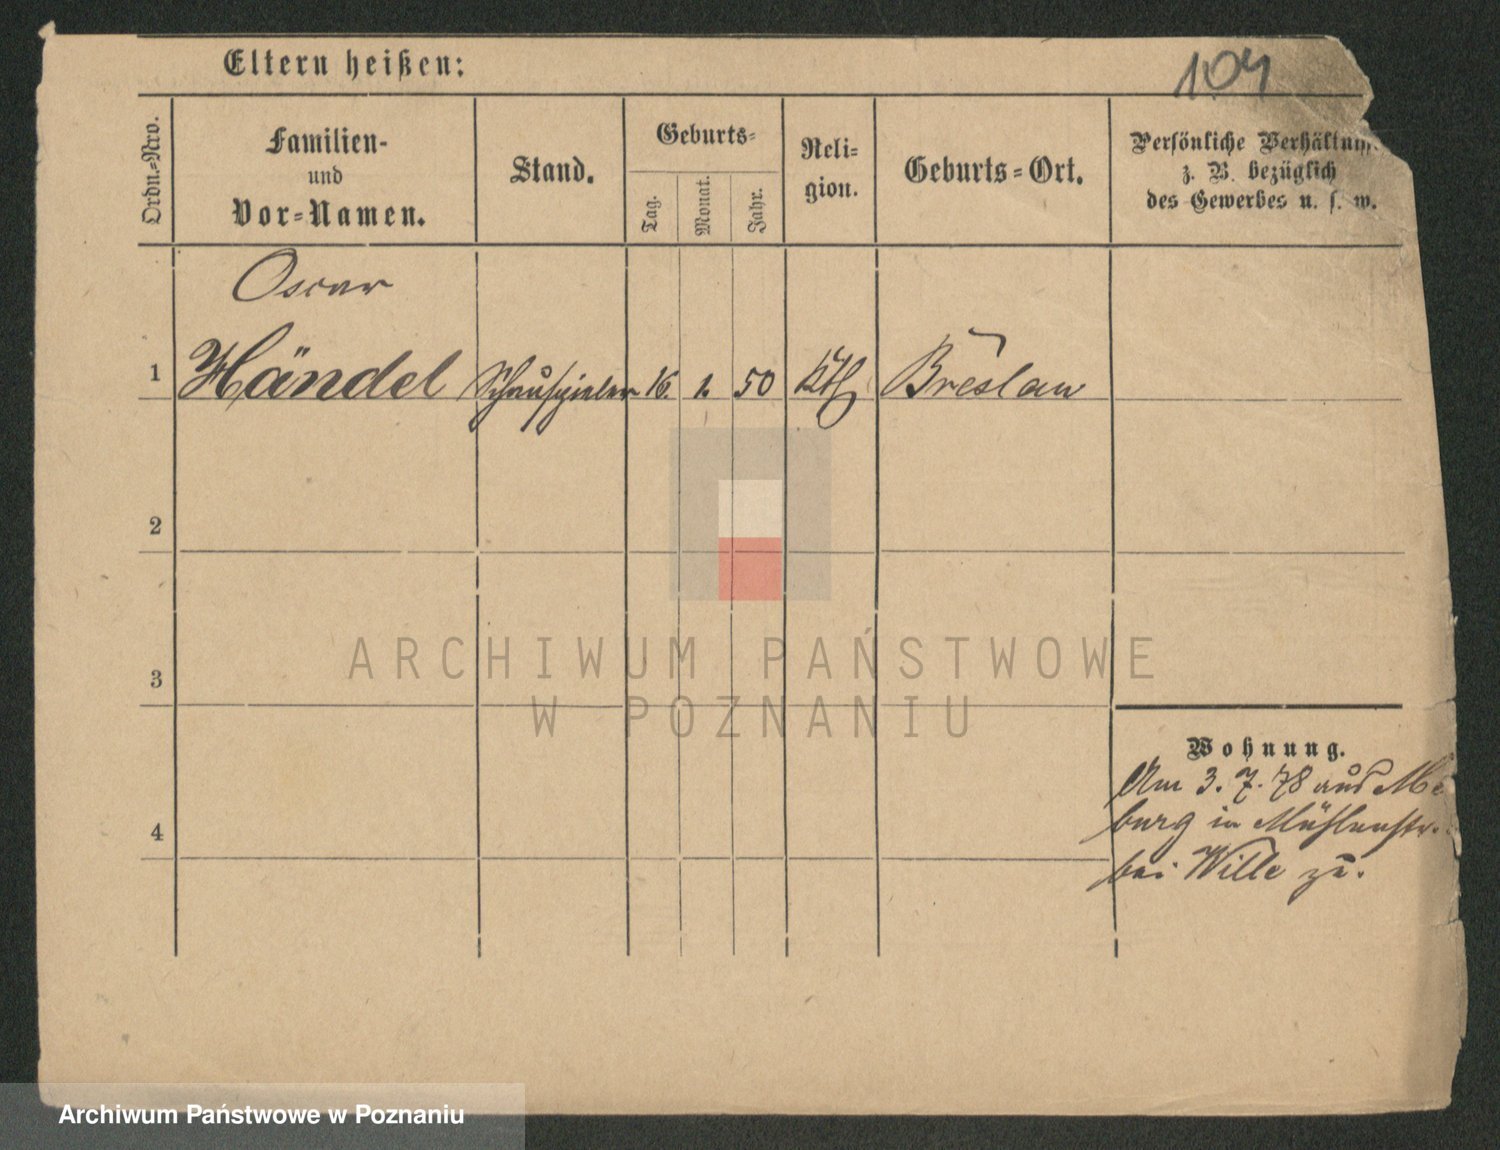 Eltern heißen:
104
Ordn.-Nro.
Familien-
und
Vor-Namen.
Stand.
Geburts-
Tag.
Monat.
Jahr.
Reli-
gion.
Geburts-Ort.
Persönliche Verhältniss
z. B. bezüglich
des Gewerbes u. s. w.
Oscar
1 Händel Schauspieler 16. 1. 50 Kth Breslau
2
3
4
Wohnung.
Am 3. 7. 78 aus
burg in Mühlenstr.
bei Wille zu.
ARCHIWUM PAŃSTWOWE
W POZNANIU
Archiwum Państwowe w Poznaniu